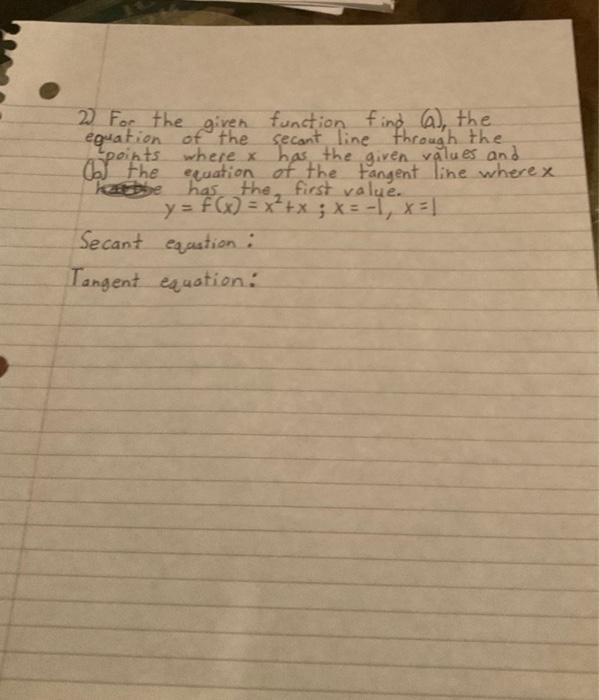 2) For the given function find (a), the
equation of the secant line through the
points where x has the given values and
(b) the equation of the tangent line where x
has the first value.
y = f(x) = x²+x ; x = -1, x=1
Secant equation :
Tangent equation :